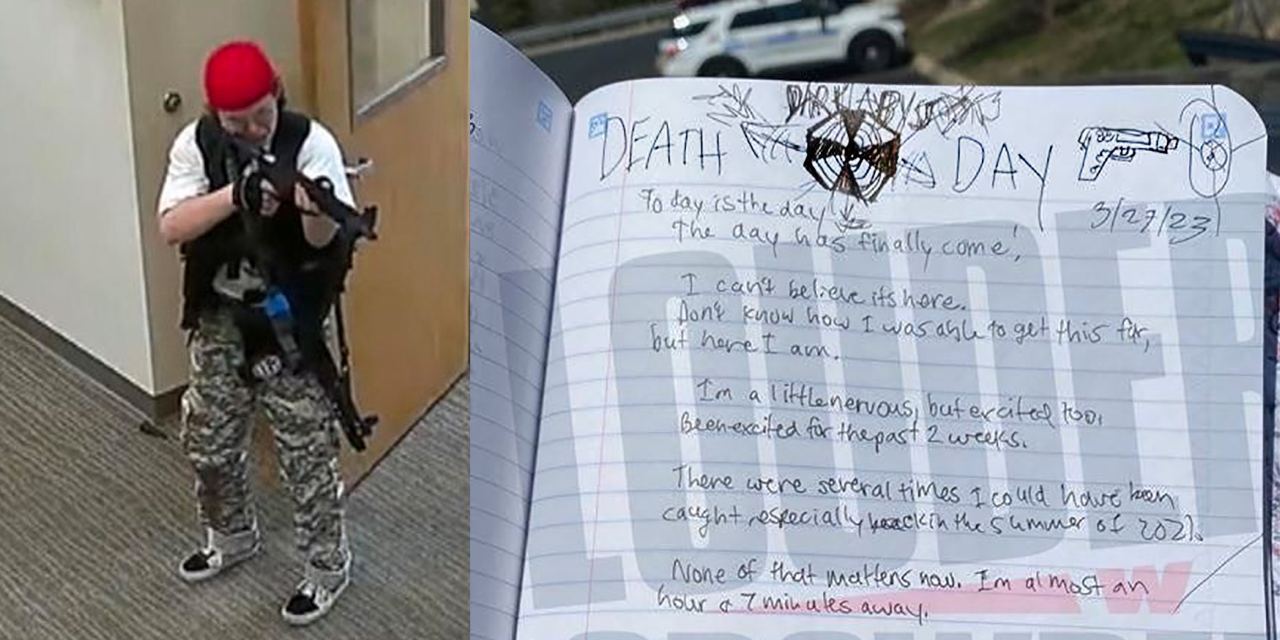 DARK ABBY
DEATH DAY
3/27/23
Today is the day
The day has finally come!
I can't believe its here.
Don't know how I was able to get this far,
but here I am.
I'm a little nervous, but excited too.
Been excited for the past 2 weeks.
There were several times I could have been
caught, especially back in the summer of 2021.
None of that matters now. I'm almost an
hour & 7 minutes away.
LOUDER
W